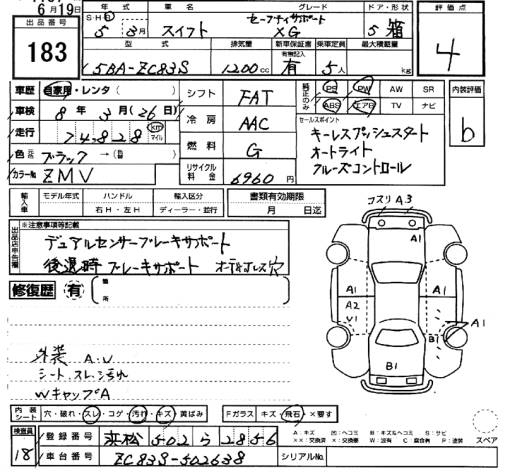 6月19日
出品番号
183
年式 車名 グレード ドア・形状 評価点
S・H・R
5年 3月 スイフト セーフティサポート XG 5 箱
4
型式 排気量 新車保証書 乗車定員 最大積載量
有無記入
5BA-ZC83S 1200cc 有 5人 kg
車歴 自家用・レンタ( )
シフト FAT
純正のみ PS PW AW SR
ABS エアB TV ナビ
内装評価
b
車検 8年 3月(26日)
冷房 AAC
セールスポイント
キーレスプッシュスタート
オートライト
クルーズコントロール
走行 74,828 km マイル
燃料 G
色 元色 ブラック→(色 )
カラーNo ZMV
リサイクル料金 6960円
輸入車 モデル年式 ハンドル 輸入区分 書類有効期限
右H・左H ディーラー・並行 月 日迄
出品店申告欄
※注意事項等記載
デュアルセンサーブレーキサポート
後退時ブレーキサポート オーディオレス穴
修復歴 有 箇所
コスリA3
A1
A1 A1
A2
V1
A1
B1
B1
外装 A.V
シート.スレ.汚れ
WキャップA
内装シート 穴・破れ・スレ・コゲ・汚れ・キズ・黄ばみ
Fガラス キズ・飛石・×要す
スペア
検査員
18
登録番号 浜松 502 ら 2856
車台番号 ZC83S-502638
A：キズ U：ヘコミ B：キズ&ヘコミ S：サビ
××：交換済 ×：交換要 W：波有 C：腐食有 P：塗装
シリアルNo.